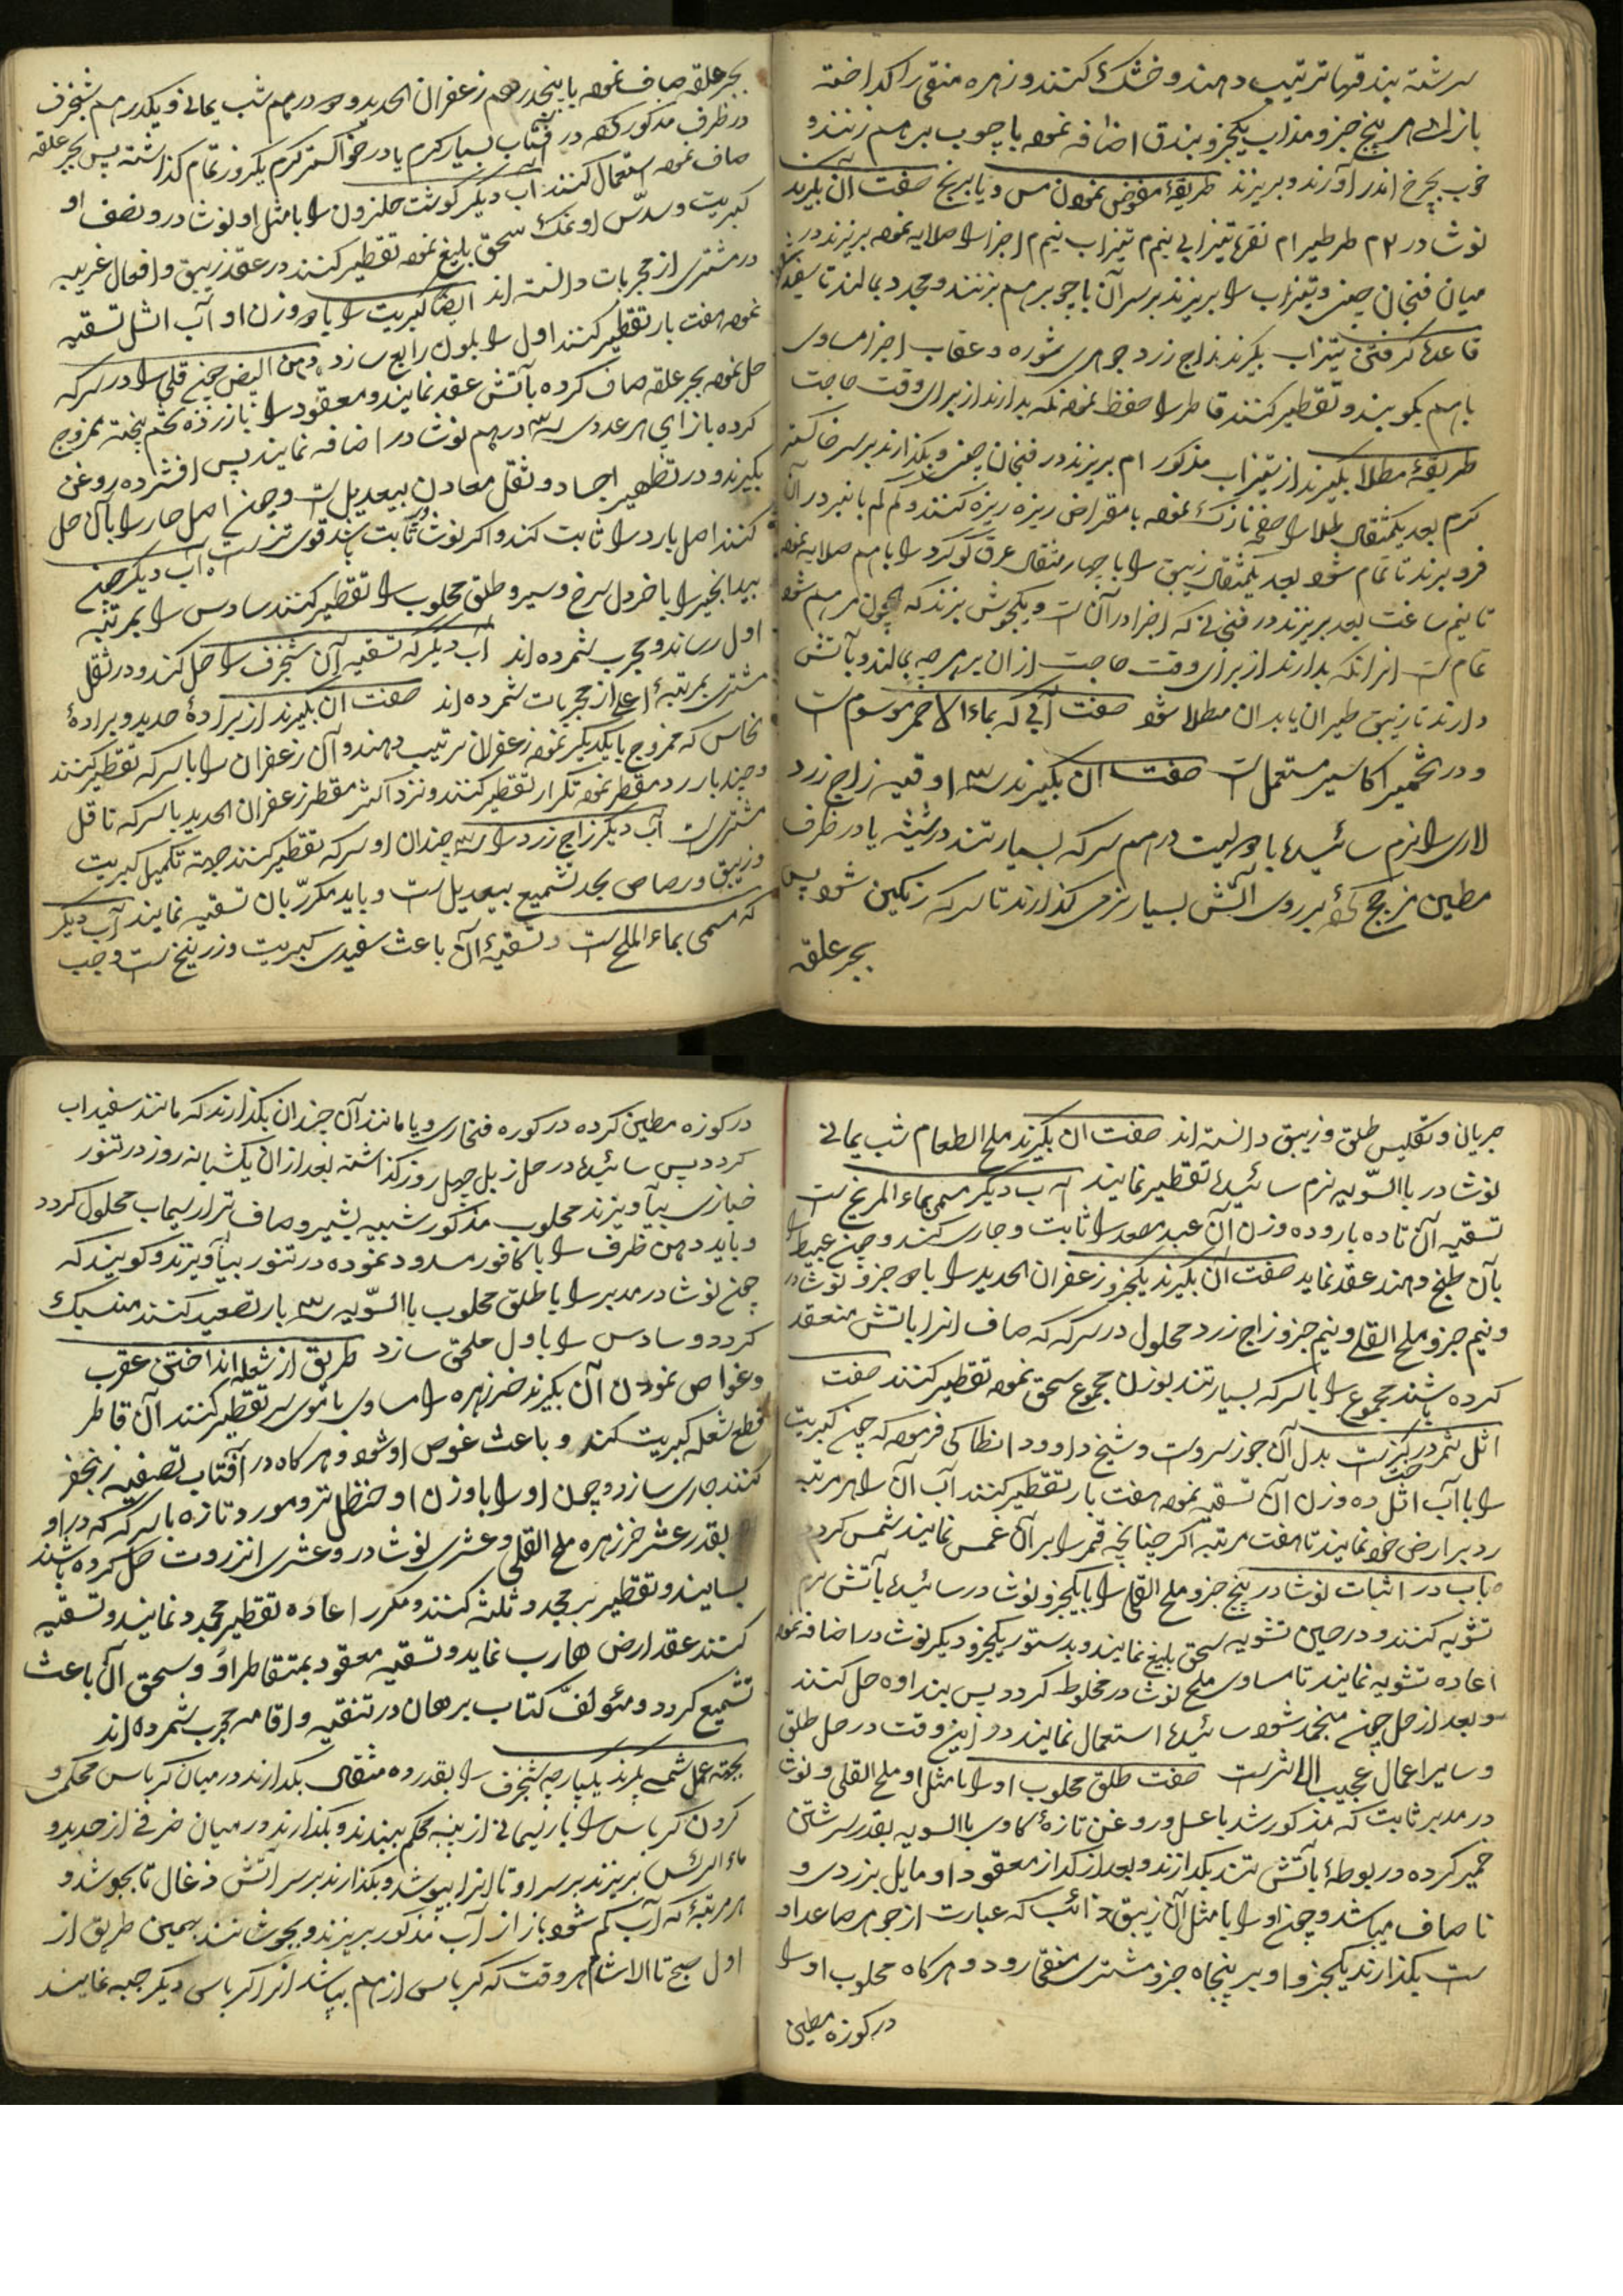 سرشته بندقها ترتیب دهند و خشک کنند و زهره منقی را کداخته
بازای هر پنج جزو مذاب یکجزو بندق اضافه نموده با چوب برهم زنند و
خوب بچرخ اندر آورند و بریزند طریقهٔ مفضض نمودن مس و یا برنج صفت آن بکیرند
نوشادر ۳م طرطیر ام نقره تیزابی نیم م تیزاب نیم م اجزا را صلایه نموده بریزند در
میان فنجان چینی و تیزاب را بریزند بر سر آن با چوب برهم بزنند و مجدد بمالند تا سفید
قاعدهٔ کرفتن تیزاب بکیرند زاج زرد جوهری شوره و عقاب اجزا مساوی
باهم بکوبند و تقطیر کنند قاطر را حفظ نموده نکه بدارند از برای وقت حاجت
طریقهٔ مطلا بکیرند از تیزاب مذکور ام بریزند در فنجان چینی و بکذارند بر سر خاکستر
کرم بعد یکمثقال طلا را صفحه نازک نموده با مقراض ریزه ریزه کنند و کم کم با نبر در آن
فرو برند تا تمام شود بعد یکمثقال زیبق را با چهار مثقال عرق کوکرد را باهم صلایه نموده
تا نیم ساعت بعد بریزند در فنجانی که اجزا در آن است و یکجوش بزند که چون مرهم شود
تمام است انرا نکه بدارند از برای وقت حاجت از ان بر هرچه بمالند و بآتش
دارند تا زیبق طیران یابد ان مطلا شود صفت آبی که بماء الاحمر موسوم است
و در تحمیر اکاسیر مستعمل است صفت ان بکیرند سه اوقیه زاج زرد
لاری را نرم سائیده با دویست درهم سرکه بسیار تند در شیشه یا در ظرف
مطین مزجج کرده بر روی آتش بسیار نرمی کذارند تا سرکه رنکین شود پس
بجر علقه
بجر علقه صاف نموده با پنجدرهم زعفران الحدید و دو درهم شب یمانی و یکدرهم شنجرف
در ظرف مذکور کرده در آفتاب بسیار کرم یا در خواکستر کرم یکروز تمام کذاشته پس بجر علقه
صاف نموده استعمال کنند آب دیکر کوشت حلزون را با مثل او نوشادر و نصف او
کبریت و سدس او نمک سحق بلیغ نموده تقطیر کنند در عقد زیبق و افعال غریبه
در مشتری از مجربات دانسته اند ایضا کبریت را با دو وزن او آب اثل تسقیه
نموده هفت بار تقطیر کنند اول را بلون رابع سازد دهن البیض چون قلی را در سرکه
حل نموده بجر علقه صاف کرده بآتش عقد نمایند و معقود را با زرده تخم پخته ممزوج
کرده بازای هر عددی سه درهم نوشادر اضافه نمایند پس افشرده روغن
بکیرند و در تطهیر اجساد و ثقل معادن بیعدیل است و چون اصل حار را بآن حل
کنند اصل بارد را ثابت کند و اکر نوشادر ثابت باشد قوی تر است آب دیکر چون
بیدانجیر را با خردل سرخ و سیر و طلق محلوب را تقطیر کنند سادس را بمرتبه
اول رساند و مجرب شمرده اند آب دیکر که تسقیه آن شنجرف را حل کند و در ثقل
مشتری بمرتبهٔ اعلی از مجربات شمرده اند صفت آن بکیرند از برادهٔ حدید و برادهٔ
نحاس که ممزوج با یکدیکر نموده زعفران ترتیب دهند و آن زعفران را با سرکه تقطیر کنند
و چند بار رد مقطر نموده تکرار تقطیر کنند و نزد اکثر مقطر زعفران الحدید با سرکه تا قل
مشتریست آب دیکر زاج زرد را با سه چندان او سرکه تقطیر کنند جهة تکمیل کبریت
و زیبق و رصاص بحد تشمیع بیعدیل است و باید مکرر بان تسقیه نمایند آب دیکر
که مسمی بماء الملح است و تسقیهٔ آن باعث سفیدی کبریت و زرنیخ است وجب
جریان و تکلیس طلق و زیبق دانسته اند صفت ان بکیرند ملح الطعام شب یمانی
نوشادر باالسویه نرم سائیده تقطیر نمایند آب دیکر مسمی بماء المریخ است
تسقیه آن تا ده بار و ده وزن آن عبد مصعد را ثابت و جاری کند و چون عبیط را
بآن طبخ دهند عقد نماید صفت ان بکیرند یکجزو زعفران الحدید را با دو جزو نوشادر
و نیم جزو ملح القلی و نیم جزو زاج زرد محلول در سرکه که صاف انرا باتش منعقد
کرده باشند مجموع را با سرکه بسیار تند بوزن مجموع سحق نموده تقطیر کنند صفت
اثل ثمر درکز است بدل آن جوز سرو است و شیخ داوود انطاکی فرموده که چون کبریت
را با آب اثل ده وزن آن تسقیه نموده هفت بار تقطیر کنند آب آن را هر مرتبه
رد بر ارض خود نمایند تا هفت مرتبه اکر چنانچه قمر را بر آن غمس نمایند شمس کردد
باب در اثبات نوشادر پنج جزو ملح القلی را با یکجزو نوشادر سائیده بآتش نرم
تشویه کنند و در حین تشویه سحق بلیغ نمایند و بدستور یکجزو دیکر نوشادر اضافه نموده
اعاده تشویه نمایند تا مساوی ملح نوشادر مخلوط کردد پس بنداوه حل کنند
و بعد از حل چون منجمد شود سائیده استعمال نمایند در زاین وقت در حل طلق
و سایر اعمال عجیب الاثر است صفت طلق محلوب او را با مثل او ملح القلی و نوشا
در مدبر ثابت که مذکور شد با عسل و روغن تازهٔ کاوی باالسویه بقدر سرشتن
خمیر کرده در بوطهٔ بآتش تند بکدازند و بعد از کداز معقود او مایل بزردی و
ناصاف میباشد و چون او را با مثل آن زیبق ذائب که عبارت از جوهر صاعد او
ست بکذارند یکجزو او بر پنجاه جزو مشتری منقی رود و هرکاه محلوب او را
در کوزه مطین
در کوزه مطین کرده در کوره فخاری و یا مانند آن چندان بکذارند که مانند سفیداب
کردد پس سائیده در حل زبل چهل روز کذاشته بعد از ان یکشبانه روز در تنور
خبازی بیآویزند محلوب مذکور شبیه بشیر و صاف تر از سیماب محلول کردد
و باید دهن ظرف را با کافور مسدود نموده در تنور بیآویزند و کویند که
چون نوشادر مدبر را با طلق محلوب باالسویه سه بار تصعید کنند منسبک
کردد و سادس را باول ملحق سازد طریق از شعله انداختن عقرب
و غواص نمودن آن بکیرند خرزهره را مساوی با موی سر تقطیر کنند آن قاطر
قطع شعله کبریت کند و باعث غوص او شود و هرکاه در آفتاب تصفیه زنجفر
کنند جاری سازد و چون او را با وزن او حنظل تر و مورد تازه با سرکه که در او
بقدر عشر خرزهره ملح القلی و عشری نوشادر و عشری انزروت حل کرده باشند
بسایند و تقطیر بر مجد و ثلثه کنند و مکرر اعاده تقطیر مجدد نمایند و تسقیه
کنند عقد ارض هارب نماید و تسقیه معقود بمتقاطر او و سحق آن باعث
تشمیع کردد و مئولف کتاب برهان در تنقیه و اقامه مجرب شمرده اند
بجهة عمل شمسی بکیرند یکپارچه شنجرف را بقدر ده مثقال بکذارند در میان کرباس محکم و
کردن کرباس را با ریسمانی از پنبه محکم ببندند و بکذارند در میان ظرفی از حدید و
ماء الرئس بریزند بر سر او تا انرا بپوشد و بکذارند بر سر آتش ذغال تا بجوشد و
هر مرتبهٔ که آب کم شود باز از آب مذکور بریزند و بجوشانند بهمین طریق از
اول صبح تا الاشام هر وقت که کرباس از هم بپاشد انرا کرباسی دیکر جبه نمایند